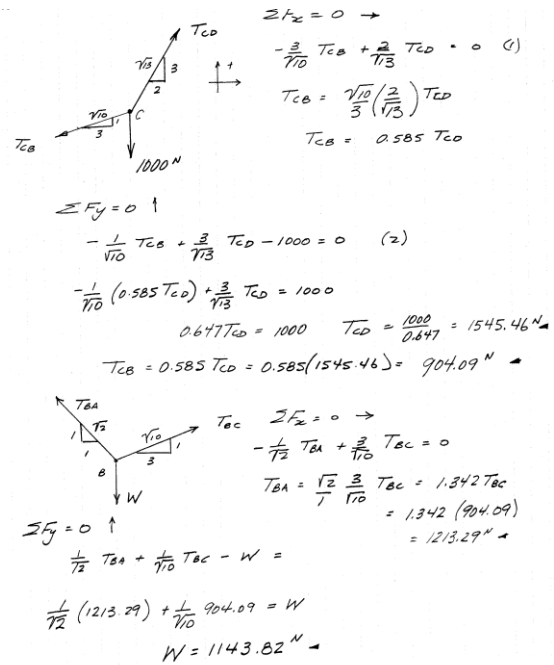 ΣFx = 0 →
T_CD
-3/√10 T_CB + 2/√13 T_CD = 0 (1)
√13 3
2
+
T_CB = √10/3 (2/√13) T_CD
√10 1 C
3
T_CB
T_CB = 0.585 T_CD
1000 N
ΣFy = 0 ↑
-1/√10 T_CB + 3/√13 T_CD - 1000 = 0 (2)
-1/√10 (0.585 T_CD) + 3/√13 T_CD = 1000
0.647 T_CD = 1000 T_CD = 1000/0.647 = 1545.46 N
T_CB = 0.585 T_CD = 0.585 (1545.46) = 904.09 N
T_BA
√2
1
1
√10
1
3
T_BC
B
W
ΣFx = 0 →
-1/√2 T_BA + 3/√10 T_BC = 0
T_BA = √2/1 3/√10 T_BC = 1.342 T_BC
= 1.342 (904.09)
= 1213.29 N
ΣFy = 0 ↑
1/√2 T_BA + 1/√10 T_BC - W =
1/√2 (1213.29) + 1/√10 904.09 = W
W = 1143.82 N